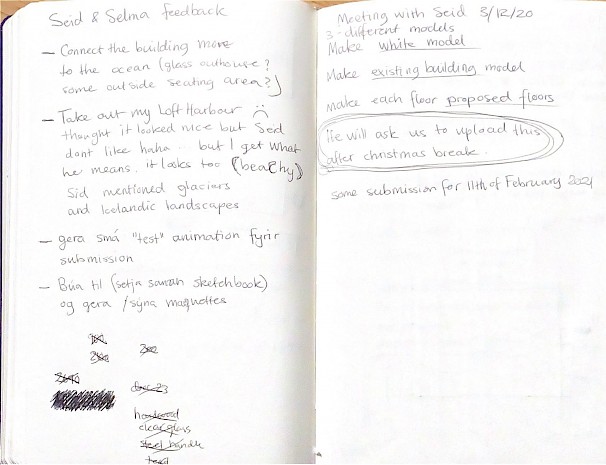 Seid & Selma feedback
- Connect the building more
to the ocean (glass outhouse?
some outside seating area?)
- Take out my Loft Harbour :(
thought it looked nice but Seid
dont like haha... but I get what
he means. it looks too (beachy)
Sid mentioned glaciers
and Icelandic landscapes
- gera smá "test" animation fyrir
submission
- Búa til (setja saman sketchbook)
og gera / sýna maquettes
hardwood
clear glass
steel handle
Meeting with Seid 3/12/20
3 - different models
Make white model
Make existing building model
make each floor proposed floors
He will ask us to upload this
after christmas break.
some submission for 11th of February 2021